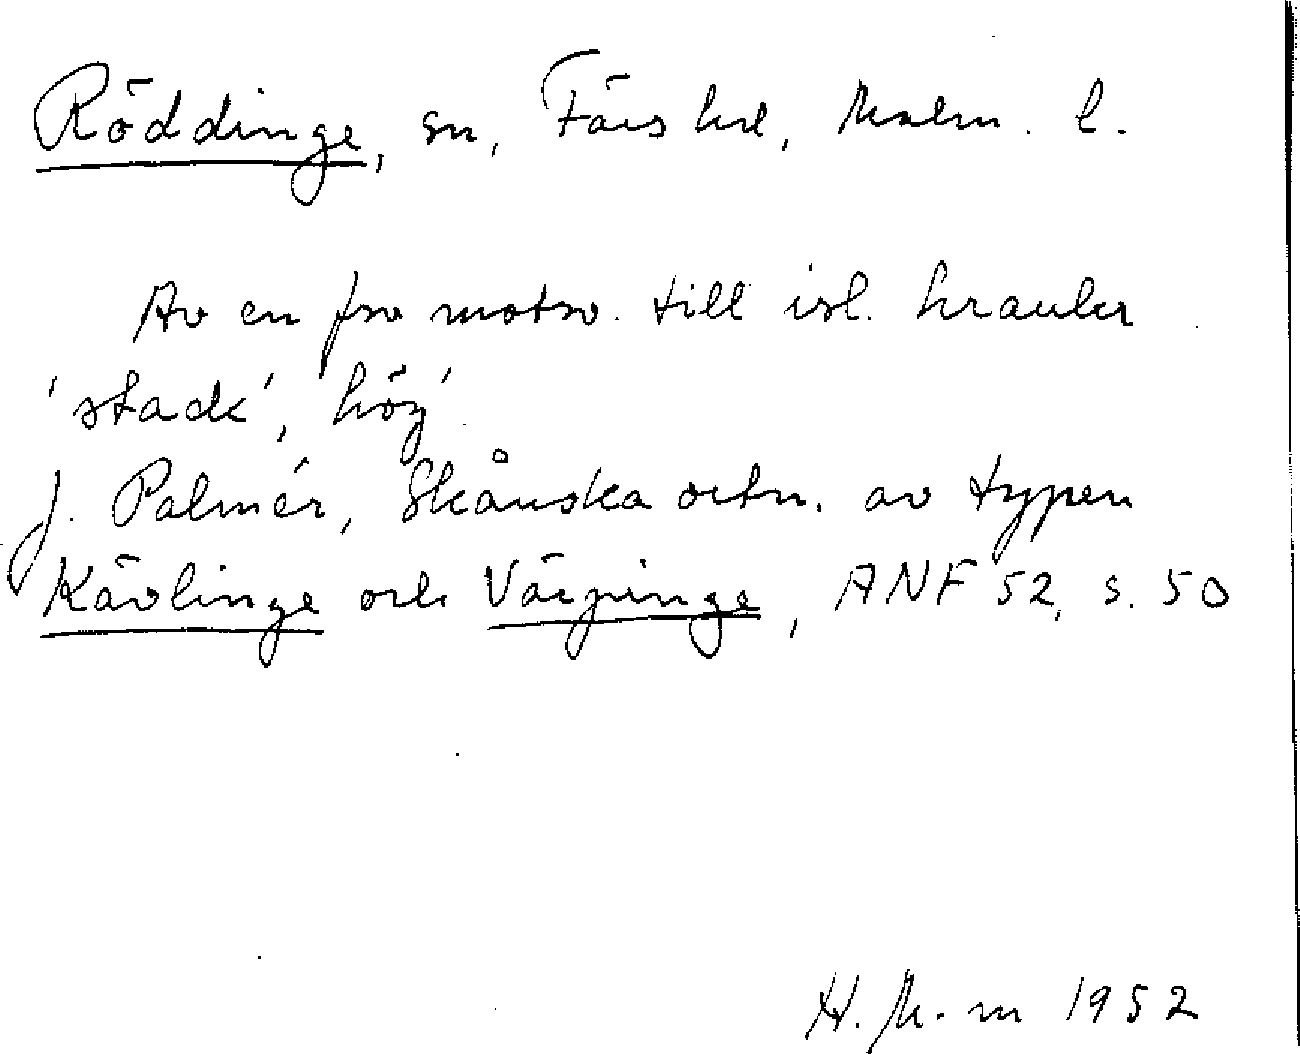 Röddinge, sn, Färs hd, Malm. l.
Av en fsv motsv. till isl. hraukr
'stack', 'hög'.
J. Palmér, Skånska ortn. av typen
Kävlinge och Värpinge, ANF 52, s. 50
H. M-m 1952